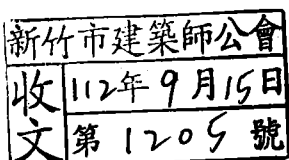 新竹市建築師公會
收文
112年9月15日
第1205號